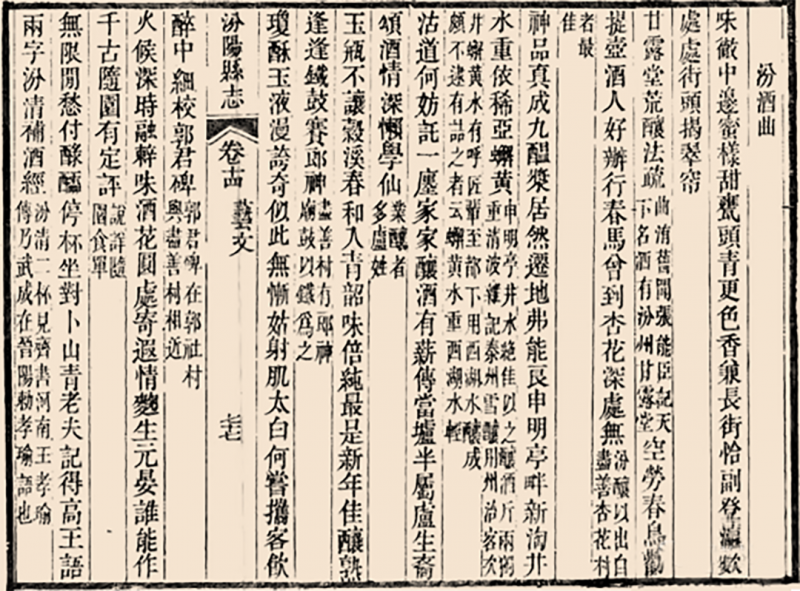 汾酒曲
味徹中邊蜜樣甜甕頭青更色香兼長街恰副登瀛歟
處處街頭揭翠帘
甘露堂荒釀法疏曲洧舊聞張能臣記天
下名酒有汾州甘露堂空勞春鳥勸
提壺酒人好辦行春馬曾到杏花深處無汾釀以出自
盡善杏花村
者最
佳
神品真成九醞漿居然遷地弗能良申明亭畔新淘井
水重依稀亞蟹黃申明亭井水絕佳以之釀酒斤兩獨
重清波雜記泰州雪醅用州治客次
井蟹黃水有呼匠輩至都下用西湖水釀成
頗不逮有詰之者云蟹黃水重西湖水輕
沽道何妨託一廛家家釀酒有薪傳當壚半屬盧生裔
頌酒情深懶學仙業釀者
多盧姓
玉瓶不讓穀溪春和入青韶味倍純最是新年佳釀熟
逢逢鐵鼓賽郎神盡善村有郎神
廟鼓以鐵為之
瓊酥玉液漫誇奇似此無慚姑射肌太白何嘗攜客飲
汾陽縣志 卷十四 藝文
醉中細校郭君碑郭君碑在郭社村
與盡善村相近
火候深時融辨味酒花圓處寄遐情麴生元晏誰能作
千古隨園有定評說詳隨
園食單
無限閒愁付醁醽停杯坐對卜山青老夫記得高王語
兩字汾清補酒經汾清二杯見齊書河南王孝瑜
傳乃武成在晉陽勅孝瑜語也